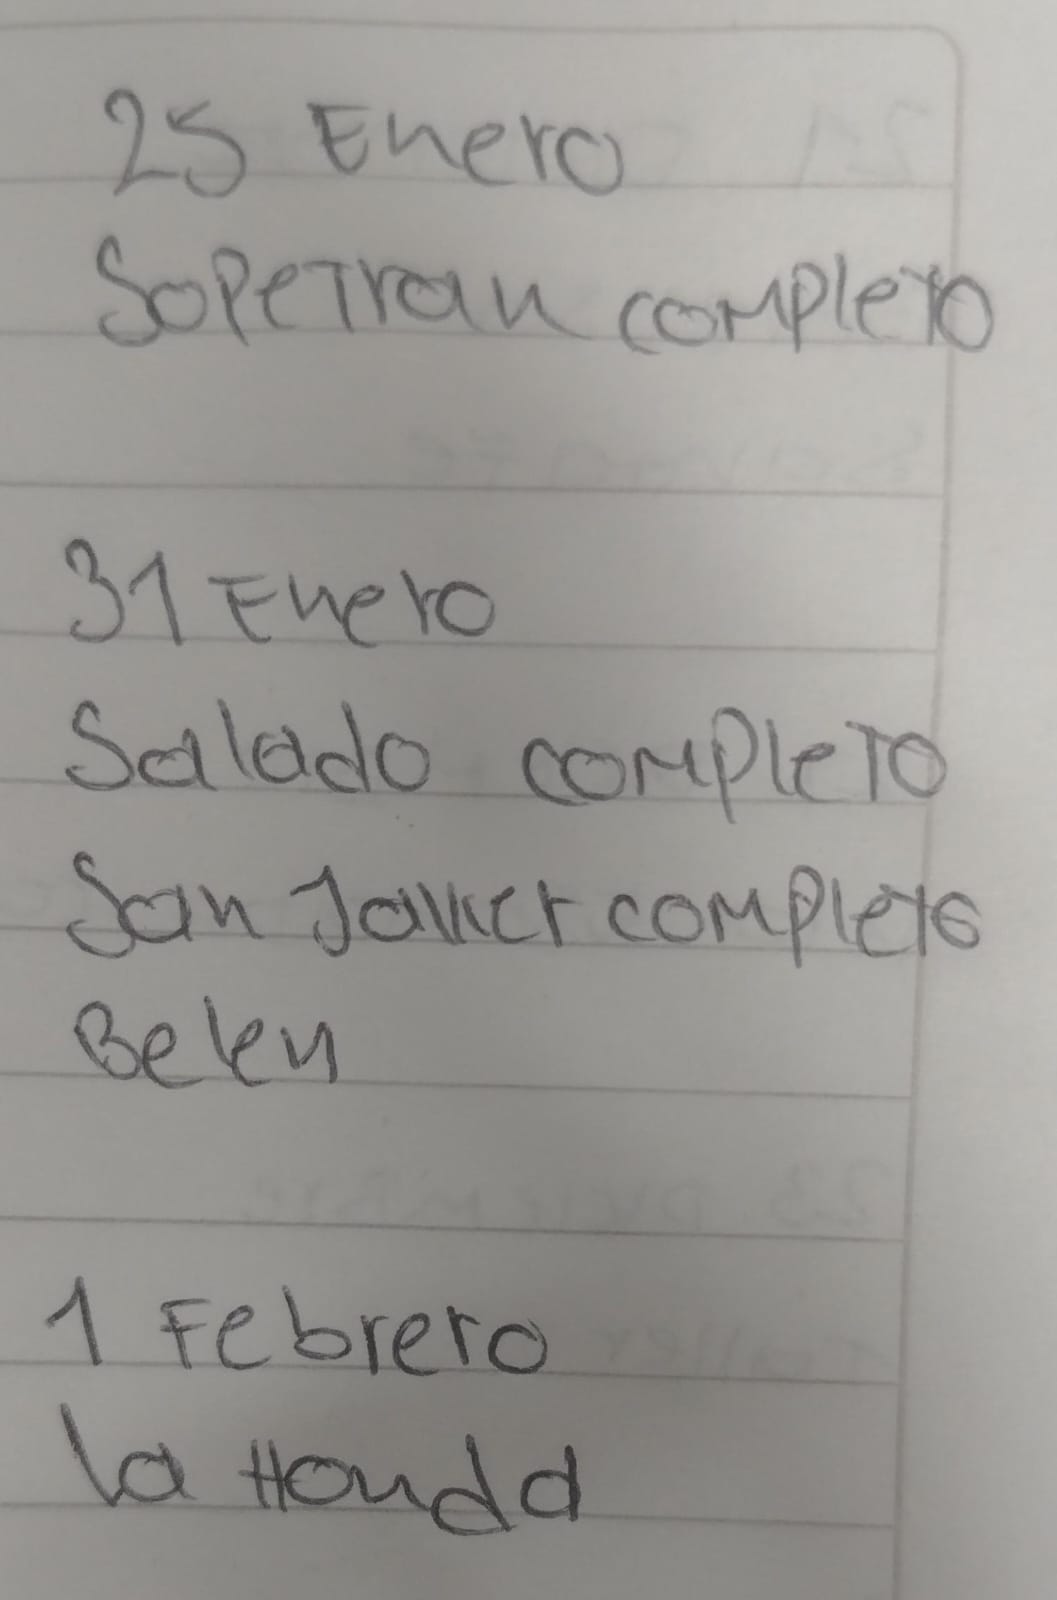 25 Enero
Sopetran completo
31 Enero
Salado completo
San Javier completo
Belen
1 Febrero
la Honda